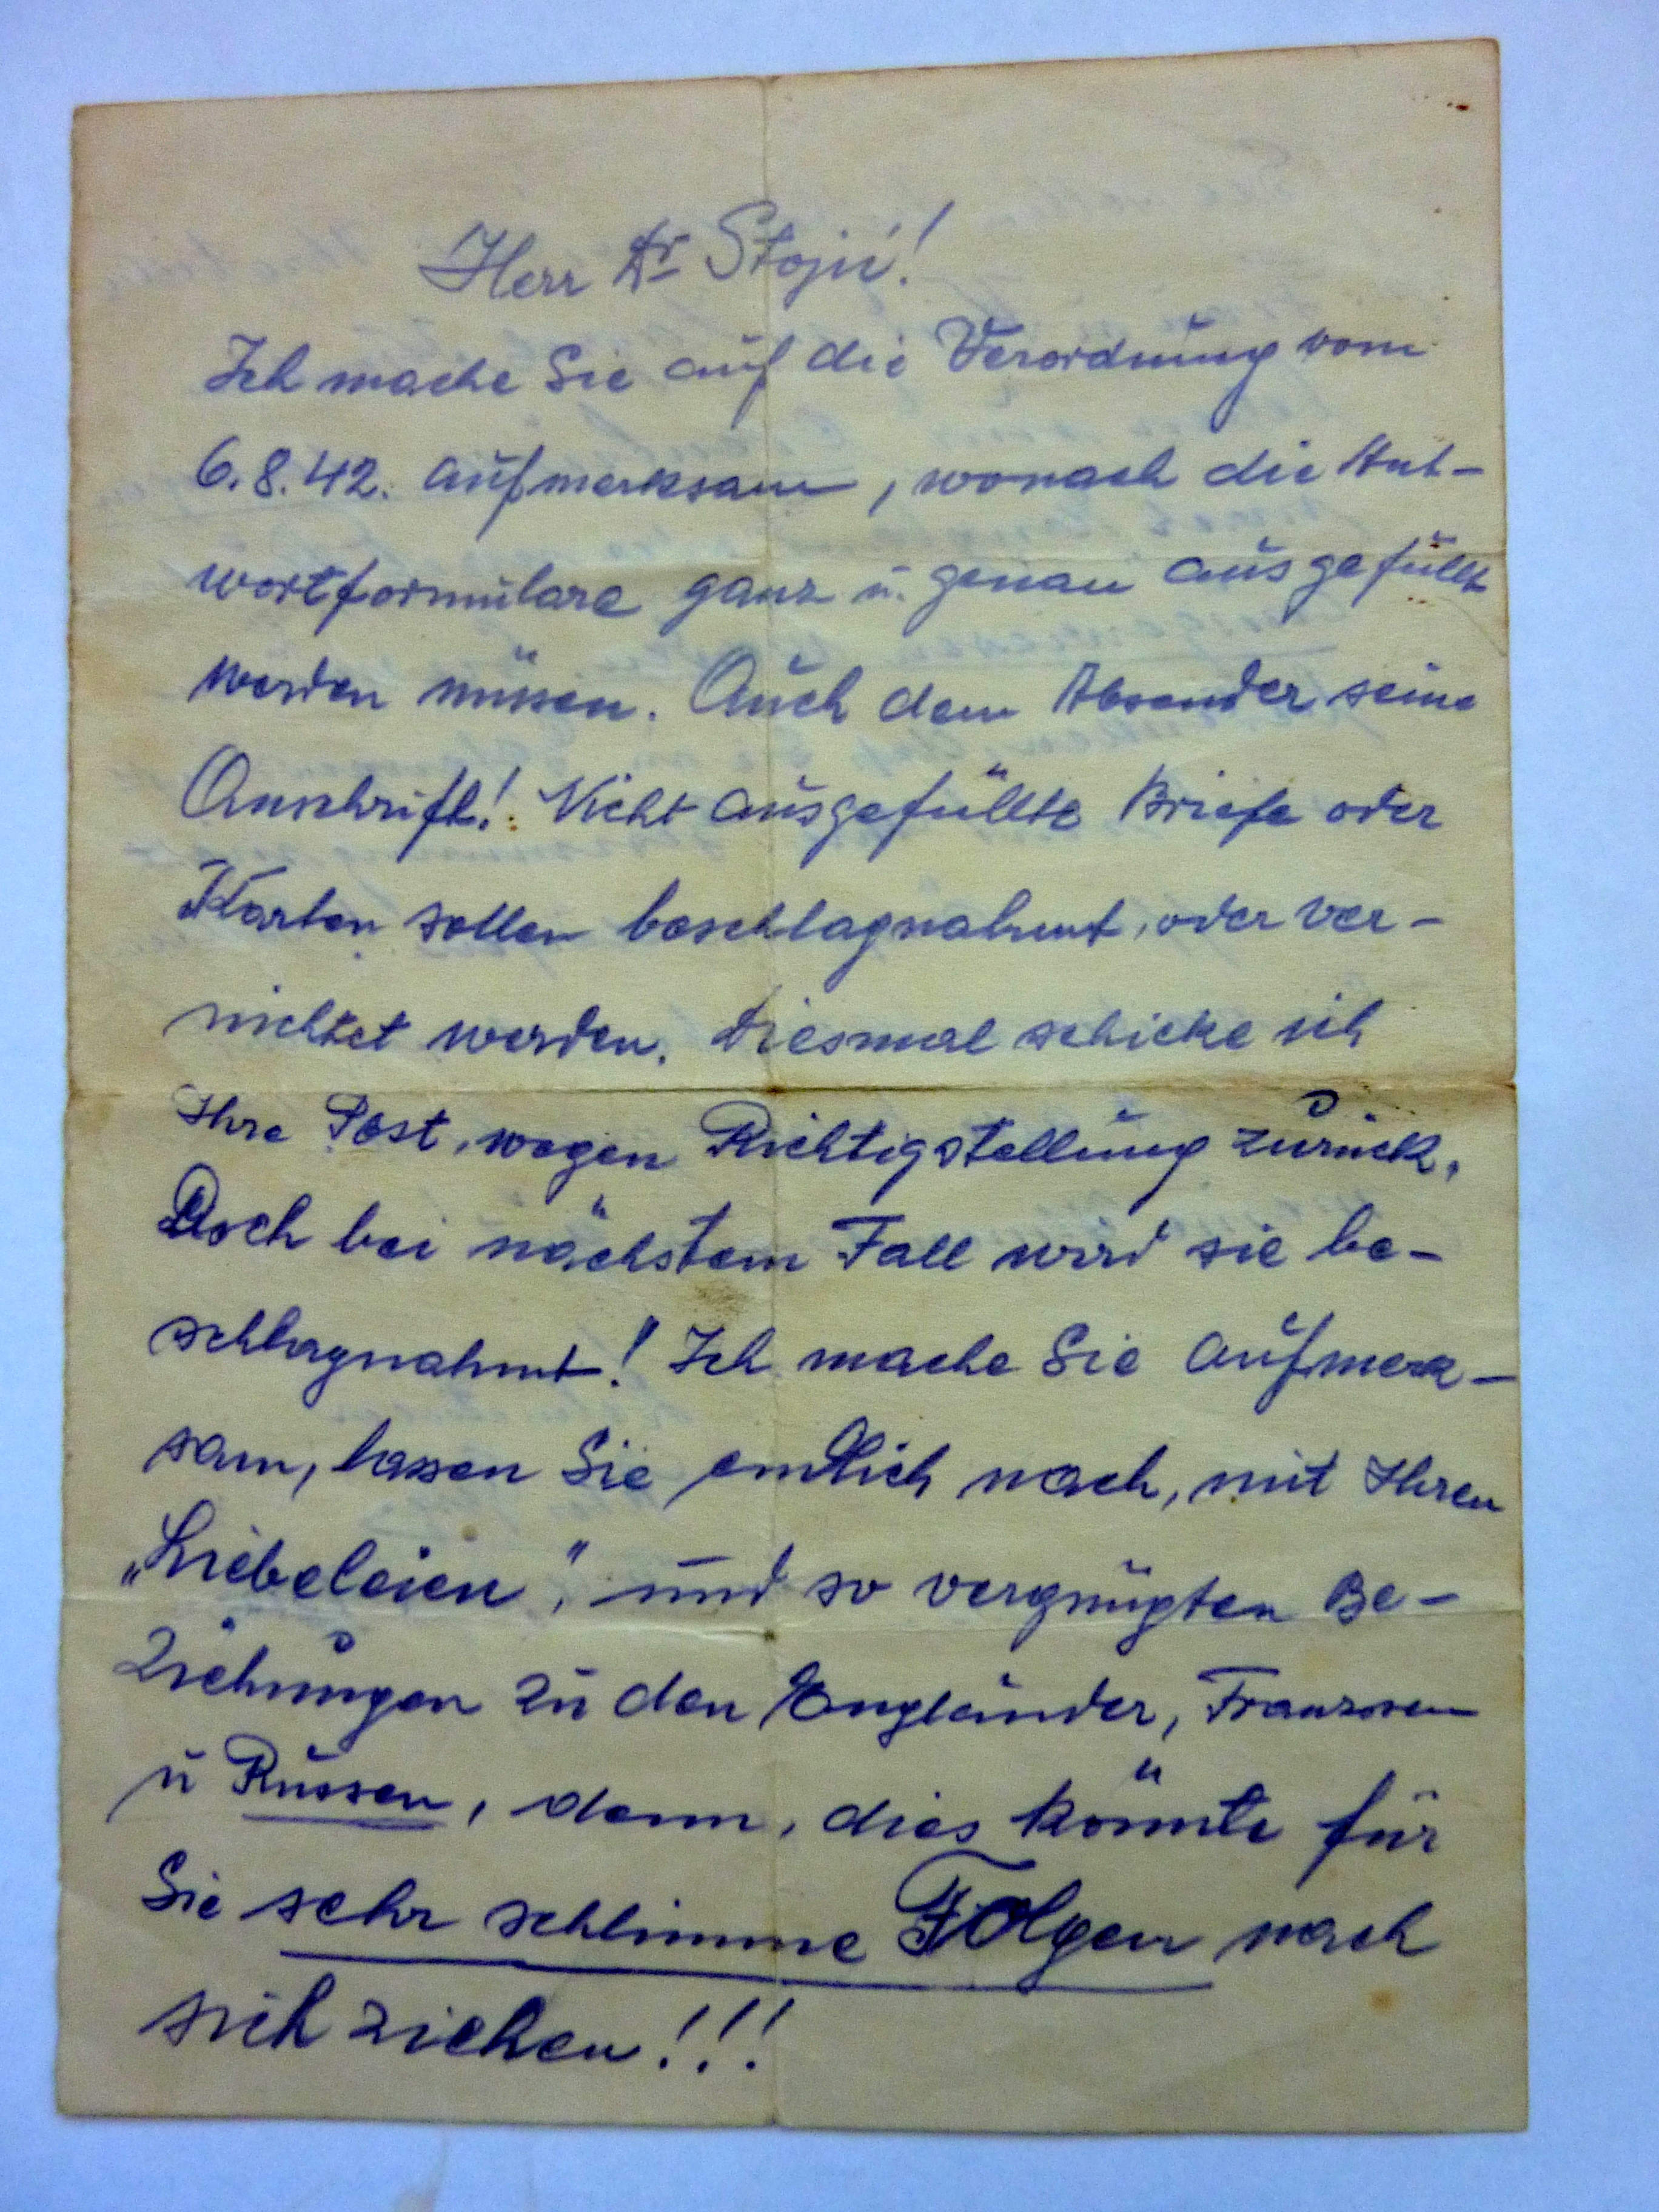 Herr Dr Stojić!
Ich mache Sie auf die Verordnung vom
6.8.42. aufmerksam, wonach die Ant-
wortformulare ganz u. genau ausgefüllt
werden müssen. Auch dem Absender seine
Anschrift! Nicht ausgefüllte Briefe oder
Karten sollen beschlagnahmt, oder ver-
nichtet werden. Diesmal schicke ich
Ihre Post, wegen Richtigstellung zurück,
Doch bei nächstem Fall wird sie be-
schlagnahmt! Ich mache Sie aufmerk-
sam, lassen Sie endlich nach, mit Ihren
„Liebeleien", und so vergnügten Be-
ziehungen zu den Engländer, Franzosen
u Russen, denn, dies könnte für
Sie sehr schlimme Folgen nach
sich ziehen!!!